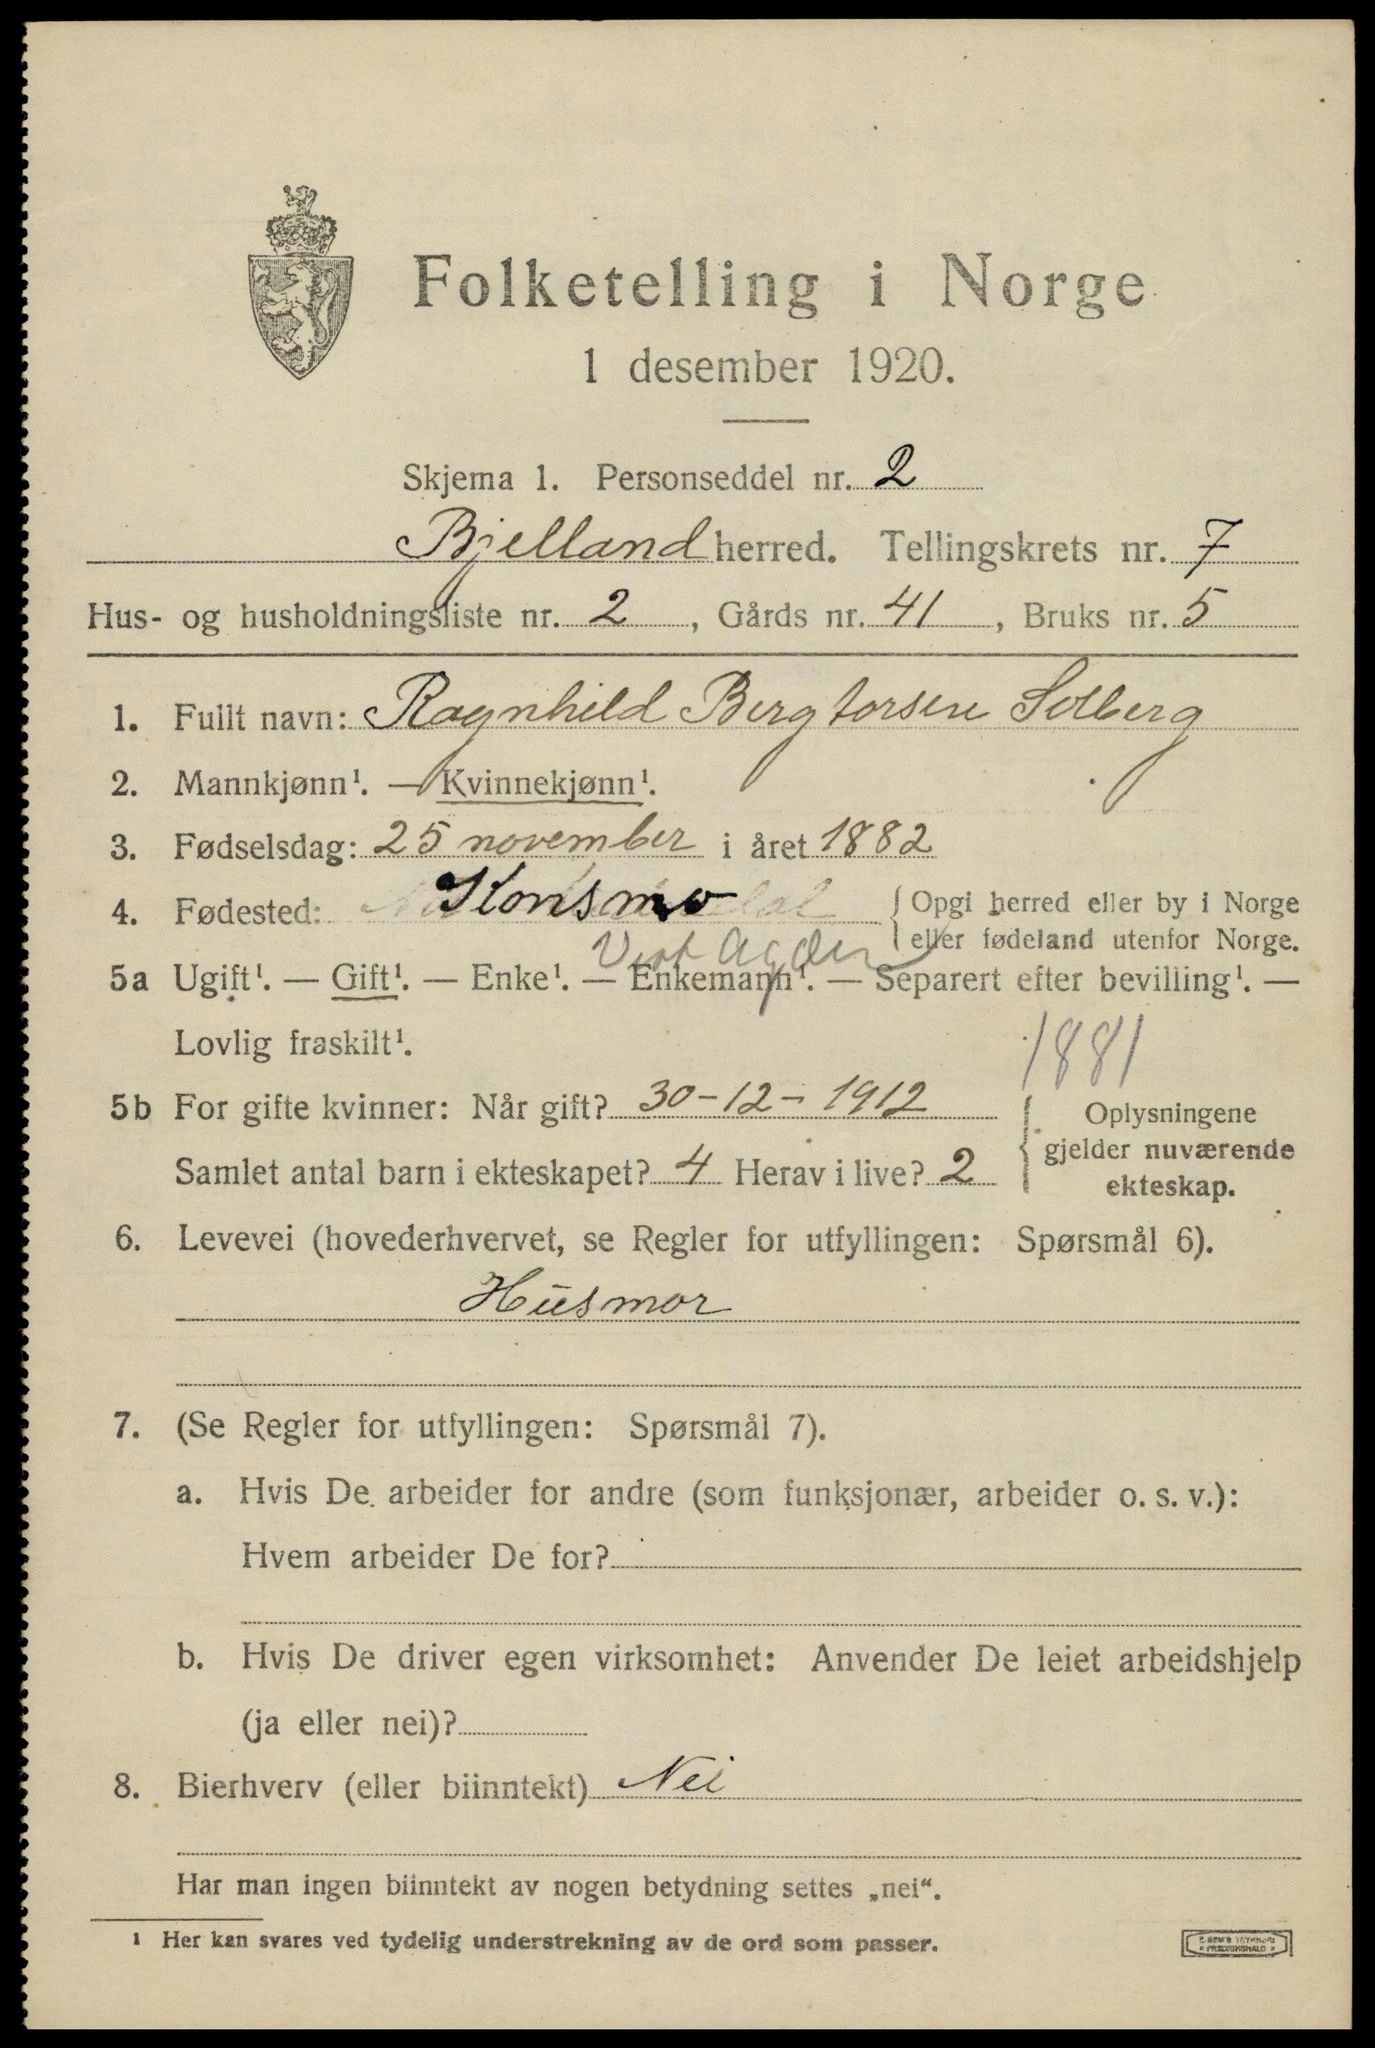 Folketelling i Norge
1 desember 1920.
Skjema 1. Personseddel nr. 2
Bjelland herred. Tellingskrets nr. 7
Hus- og husholdningsliste nr. 2, Gårds nr. 41, Bruks nr. 5
1. Fullt navn: Ragnhild Bergtorsen Solberg
2. Mannkjønn¹. — Kvinnekjønn¹.
3. Fødselsdag: 25 november i året 1882
4. Fødested: Konsmo { Opgi herred eller by i Norge
eller fødeland utenfor Norge.
Vest Agder
5a Ugift¹. — Gift¹. — Enke¹. — Enkemann¹. — Separert efter bevilling¹. —
Lovlig fraskilt¹.
1881
5b For gifte kvinner: Når gift? 30-12-1912
Samlet antal barn i ekteskapet? 4 Herav i live? 2
{ Oplysningene
gjelder nuværende
ekteskap.
6. Levevei (hovederhvervet, se Regler for utfyllingen: Spørsmål 6).
Husmor
7. (Se Regler for utfyllingen: Spørsmål 7).
a. Hvis De arbeider for andre (som funksjonær, arbeider o. s. v.):
Hvem arbeider De for?
b. Hvis De driver egen virksomhet: Anvender De leiet arbeidshjelp
(ja eller nei)?
8. Bierhverv (eller biinntekt) Nei
Har man ingen biinntekt av nogen betydning settes „nei“.
¹ Her kan svares ved tydelig understrekning av de ord som passer.